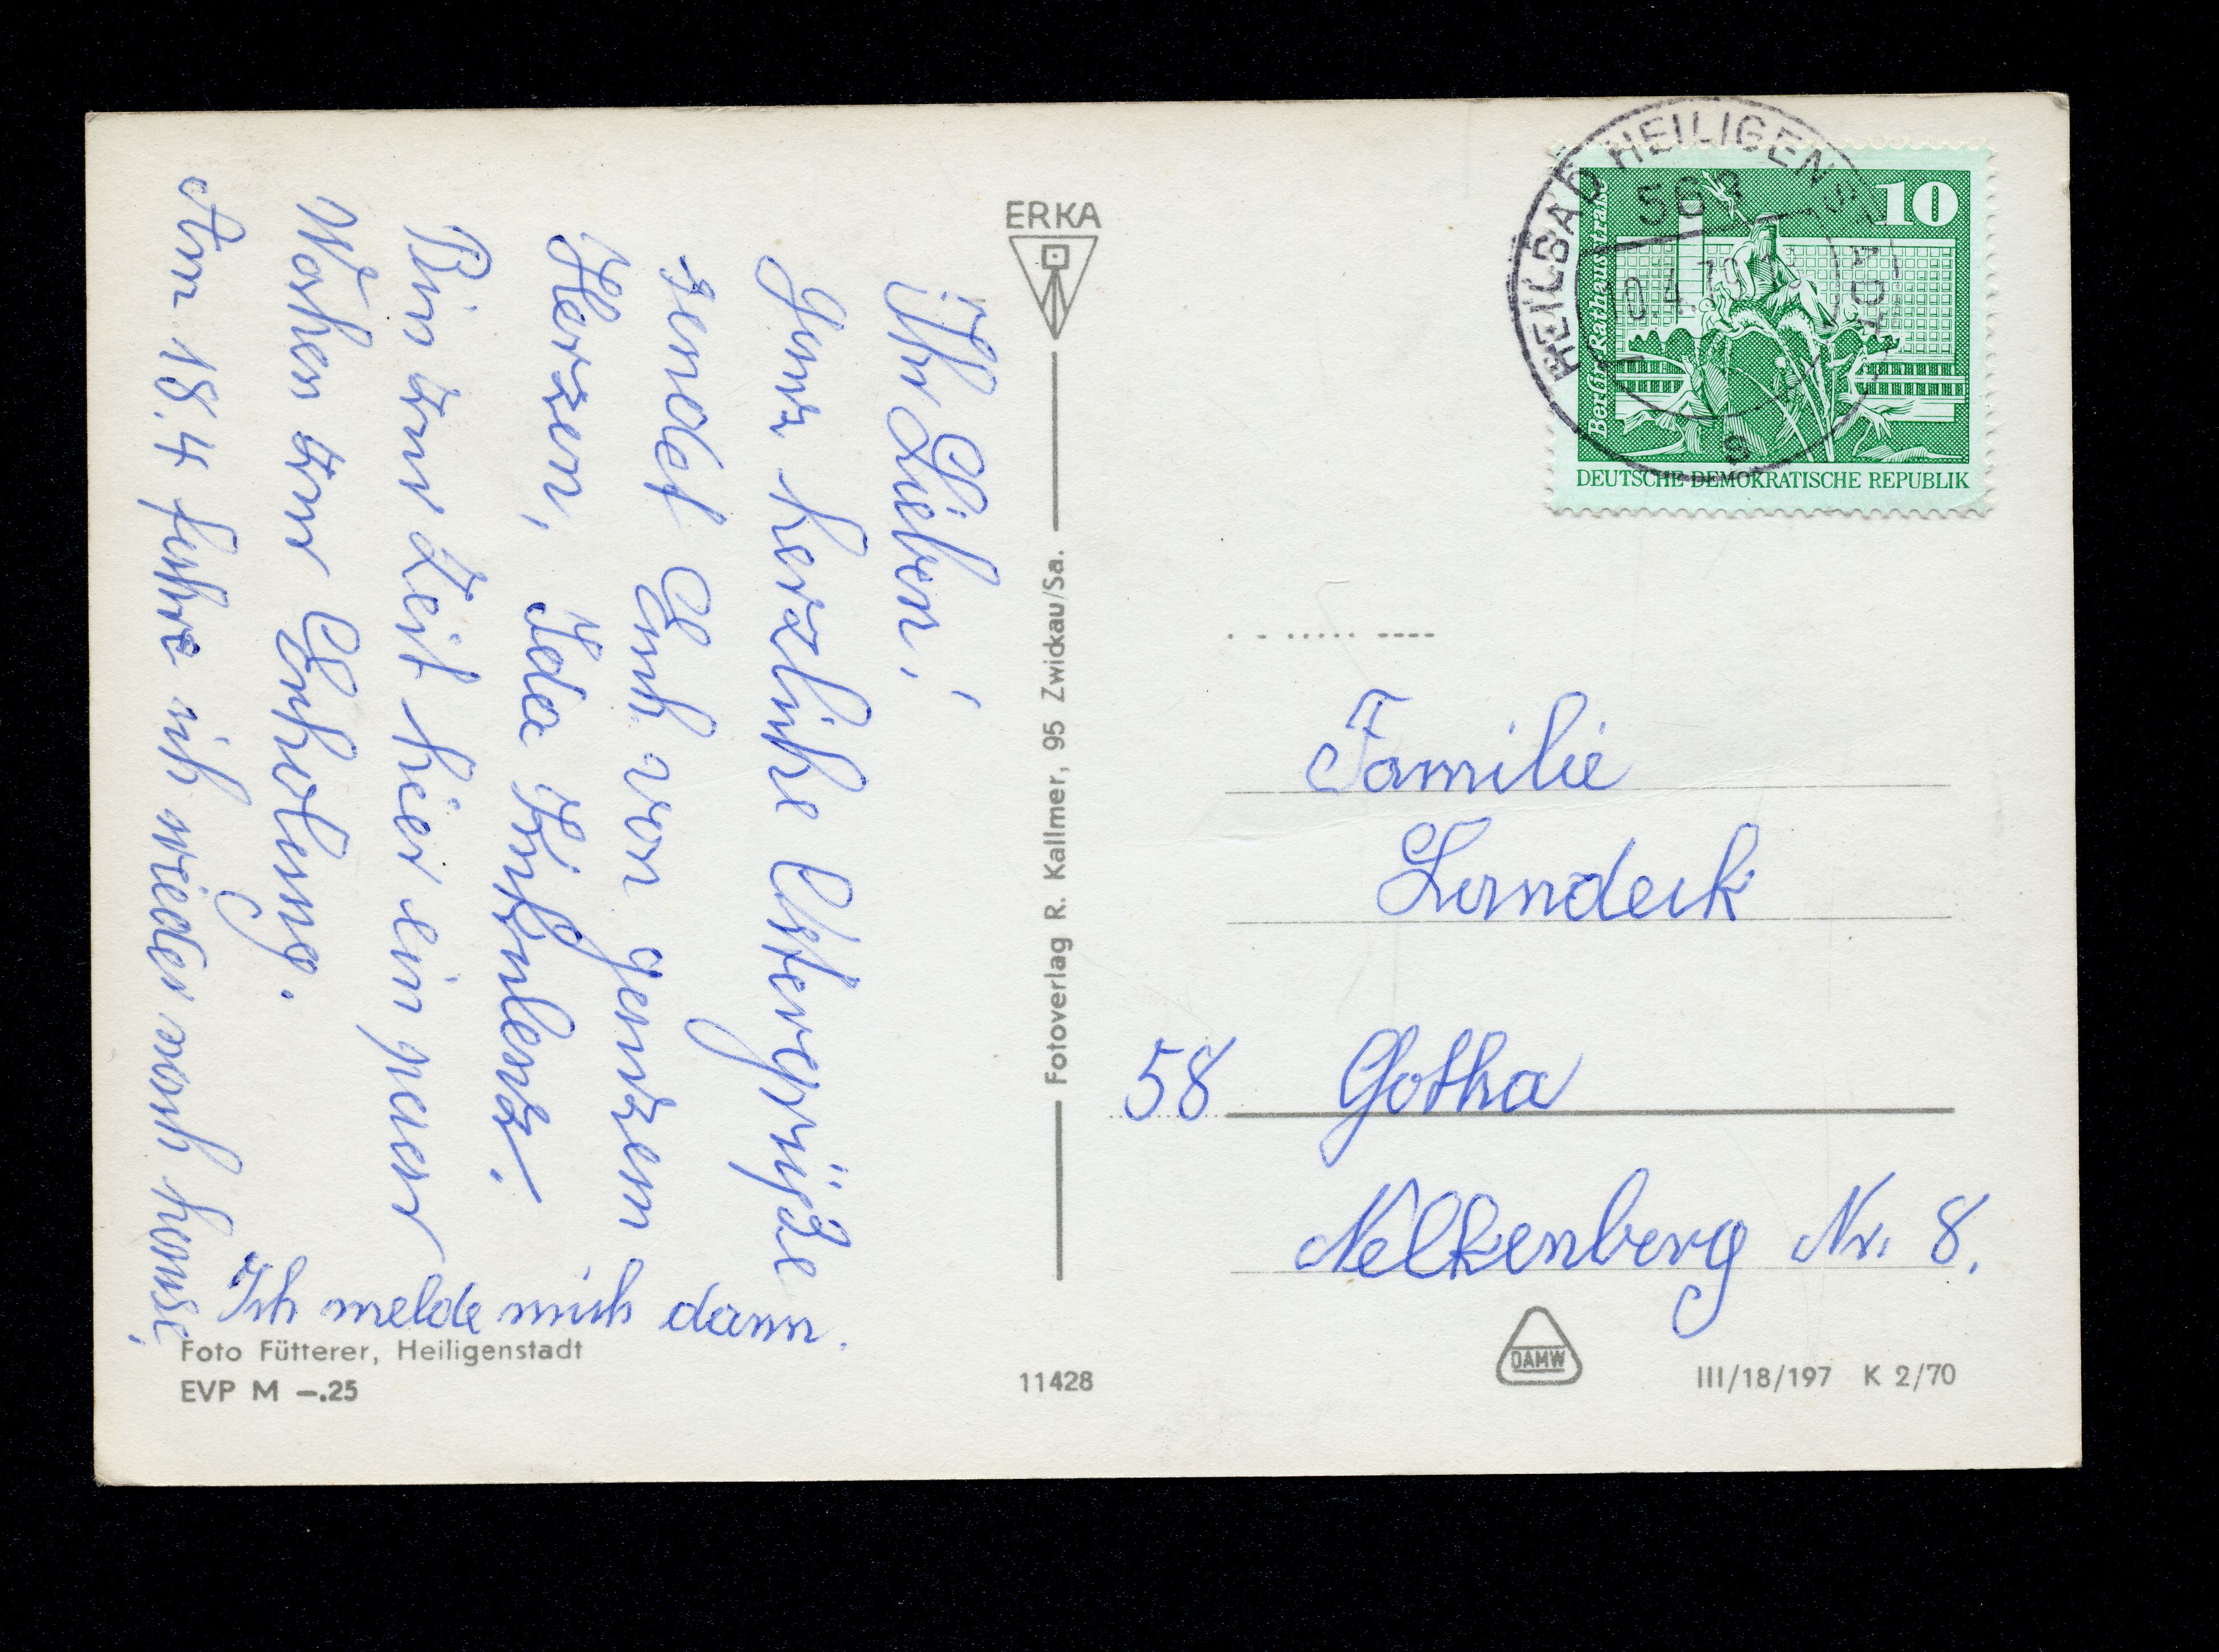 Ihr Lieben!
Ganz herzliche Ostergrüße
sendet Euch von ganzem
Herzen, Ida
Bin zur Zeit hier ein paar
Wochen zur Erholung.
Am 18.4 fahre ich wieder nach hause,
Ich melde mich dann.
Foto Fütterer, Heiligenstadt
EVP M –.25
ERKA
Fotoverlag R. Kallmer, 95 Zwickau/Sa.
11428
HEILBAD HEILIGENSTADT
563
s
10
Berlin, Rathausstraße
DEUTSCHE DEMOKRATISCHE REPUBLIK
Familie
Landeck
58 Gotha
Nelkenberg Nr. 8.
DAMW
III/18/197 K 2/70